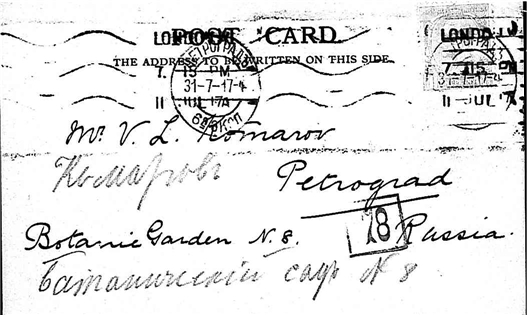 POST CARD.
THE ADDRESS TO BE WRITTEN ON THIS SIDE.
LONDON
7. 15 PM
11 JUL 17
31-7-17
LONDON
7. 15 P
11 JUL 17
31-7-17
Mr V. L. Komarov
Комаровъ
Petrograd
Botanic Garden N. 8.
18
Russia.
Ботанический садъ N 8